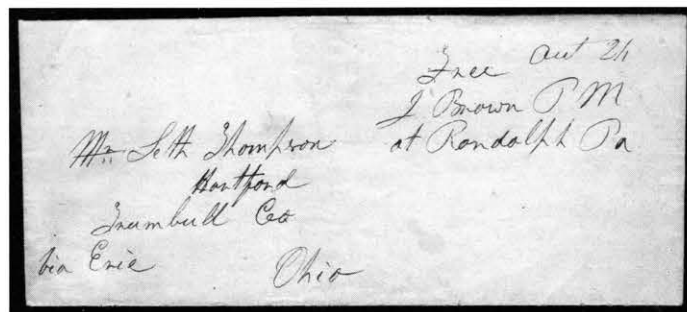 Free Aut 24
J Brown P M
at Randolph Pa
Mr. Seth Thompson
Hartford
Trumbull Co
via Erie
Ohio